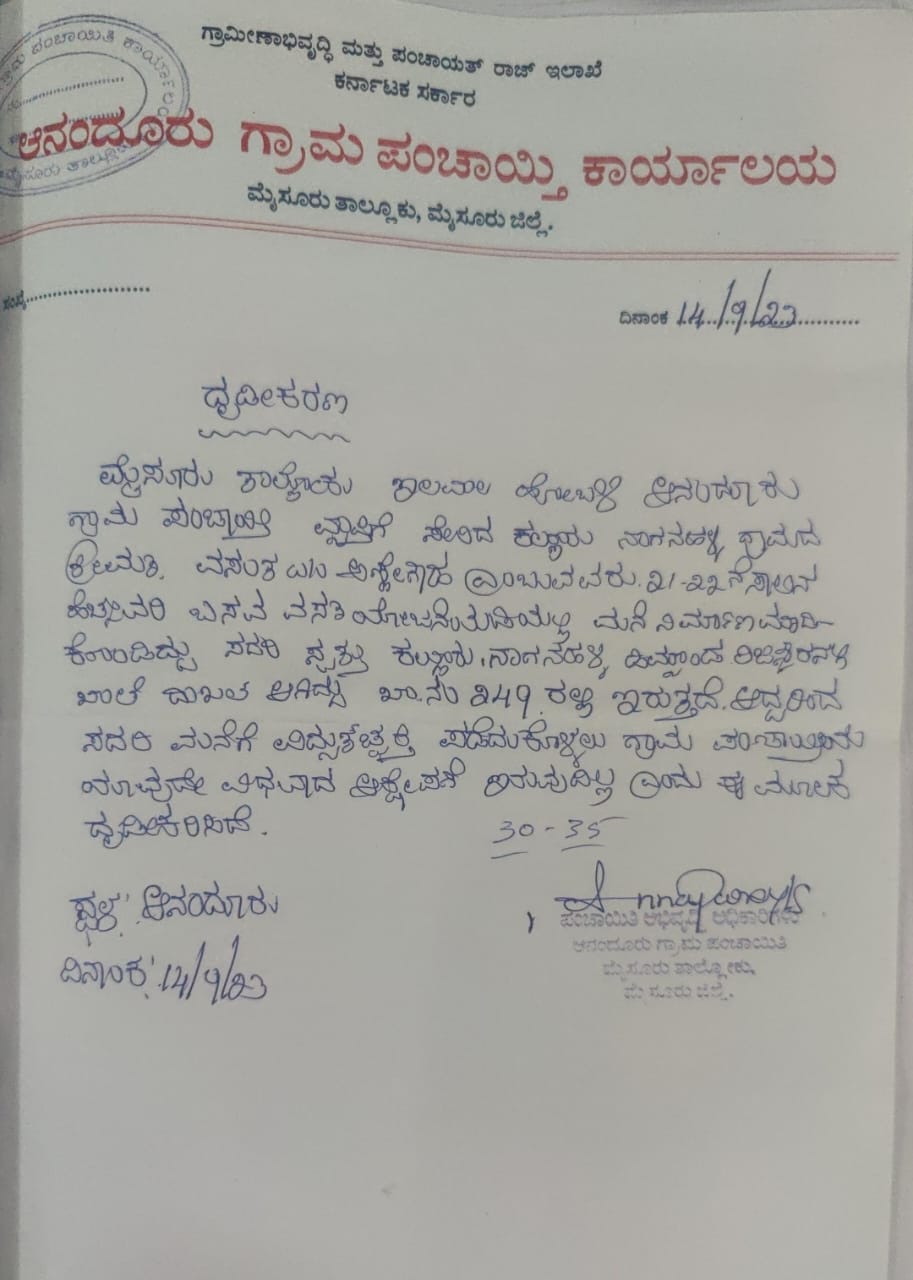 ಗ್ರಾಮ ಪಂಚಾಯಿತಿ ಕಾರ್ಯಾಲಯ
ಮೈಸೂರು ತಾಲ್ಲೂಕು
ಗ್ರಾಮೀಣಾಭಿವೃದ್ಧಿ ಮತ್ತು ಪಂಚಾಯತ್ ರಾಜ್ ಇಲಾಖೆ
ಕರ್ನಾಟಕ ಸರ್ಕಾರ
ಆನಂದೂರು ಗ್ರಾಮ ಪಂಚಾಯ್ತಿ ಕಾರ್ಯಾಲಯ
ಮೈಸೂರು ತಾಲ್ಲೂಕು, ಮೈಸೂರು ಜಿಲ್ಲೆ.
ಸಂಖ್ಯೆ..........................
ದಿನಾಂಕ 14/9/23
ದೃಢೀಕರಣ
ಮೈಸೂರು ತಾಲ್ಲೋಕು ಇಲವಾಲ ಹೋಬಳಿ ಆನಂದೂರು
ಗ್ರಾಮ ಪಂಚಾಯ್ತಿ ವ್ಯಾಪ್ತಿಗೆ ಸೇರಿದ ಕಲ್ಲೂರು ನಾಗನಹಳ್ಳಿ ಗ್ರಾಮದ
ಶ್ರೀಮತಿ. ವಸಂತ ಎಂಬುವವರು. 21-22 ನೆ ಸಾಲಿನ
ಬಸವ ವಸತಿ ಯೋಜನೆಯಡಿಯಲ್ಲಿ ಮನೆ ನಿರ್ಮಾಣ ಮಾಡಿ-
ಕೊಂಡಿದ್ದು ಸದರಿ ಸ್ವತ್ತು ಕಲ್ಲೂರು, ನಾಗನಹಳ್ಳಿ
ಖಾತೆ ದಾಖಲ ಆಗಿದ್ದು ಖಾ.ನಂ 249 ರಲ್ಲಿ ಇರುತ್ತದೆ. ಆದ್ದರಿಂದ
ಸದರಿ ಮನೆಗೆ ವಿದ್ಯುತ್‌ಚ್ಛಕ್ತಿ ಪಡೆದುಕೊಳ್ಳಲು ಗ್ರಾಮ ಪಂಚಾಯ್ತಿಯು
ಯಾವುದೇ ವಿಧವಾದ ಆಕ್ಷೇಪಣೆ ಇರುವುದಿಲ್ಲ ಎಂದು ಈ ಮೂಲಕ
ದೃಢೀಕರಿಸಿದೆ.
30-35
ಸ್ಥಳ: ಆನಂದೂರು
ದಿನಾಂಕ: 14/9/23
ಪಂಚಾಯಿತಿ ಅಭಿವೃದ್ಧಿ ಅಧಿಕಾರಿಗಳು
ಆನಂದೂರು ಗ್ರಾಮ ಪಂಚಾಯಿತಿ
ಮೈಸೂರು ತಾಲ್ಲೋಕು,
ಮೈಸೂರು ಜಿಲ್ಲೆ.